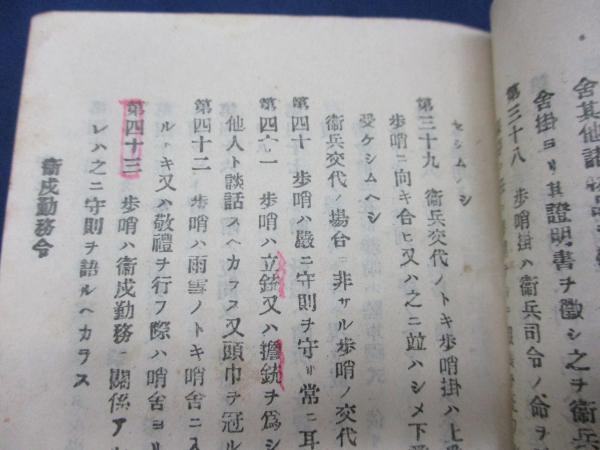 舍其他諸
舍掛ヨリ其證明書ヲ徴シ之ヲ衞兵
第三十八 步哨掛ハ衞兵司令ノ命ヲ
セシムヘシ
第三十九 衞兵交代ノトキ步哨掛ハ上
步哨ニ向キ合ヒ又ハ之ニ竝ハシメ下
受ケシムヘシ
衞兵交代ノ場合ニ非サル步哨ノ交代
第四十 步哨ハ嚴ニ守則ヲ守リ常ニ耳
第四十一 步哨ハ立銃又ハ擔銃ヲ爲シ
他人ト談話スヘカラス又頭巾ヲ冠ル
第四十二 步哨ハ雨雪ノトキ哨舍ニ入
ルトキ又ハ敬禮ヲ行フ際ハ哨舍ヨリ
第四十三 步哨ハ衞戍勤務ニ關係ア
レハ之ニ守則ヲ語ルヘカラス
衞戍勤務令